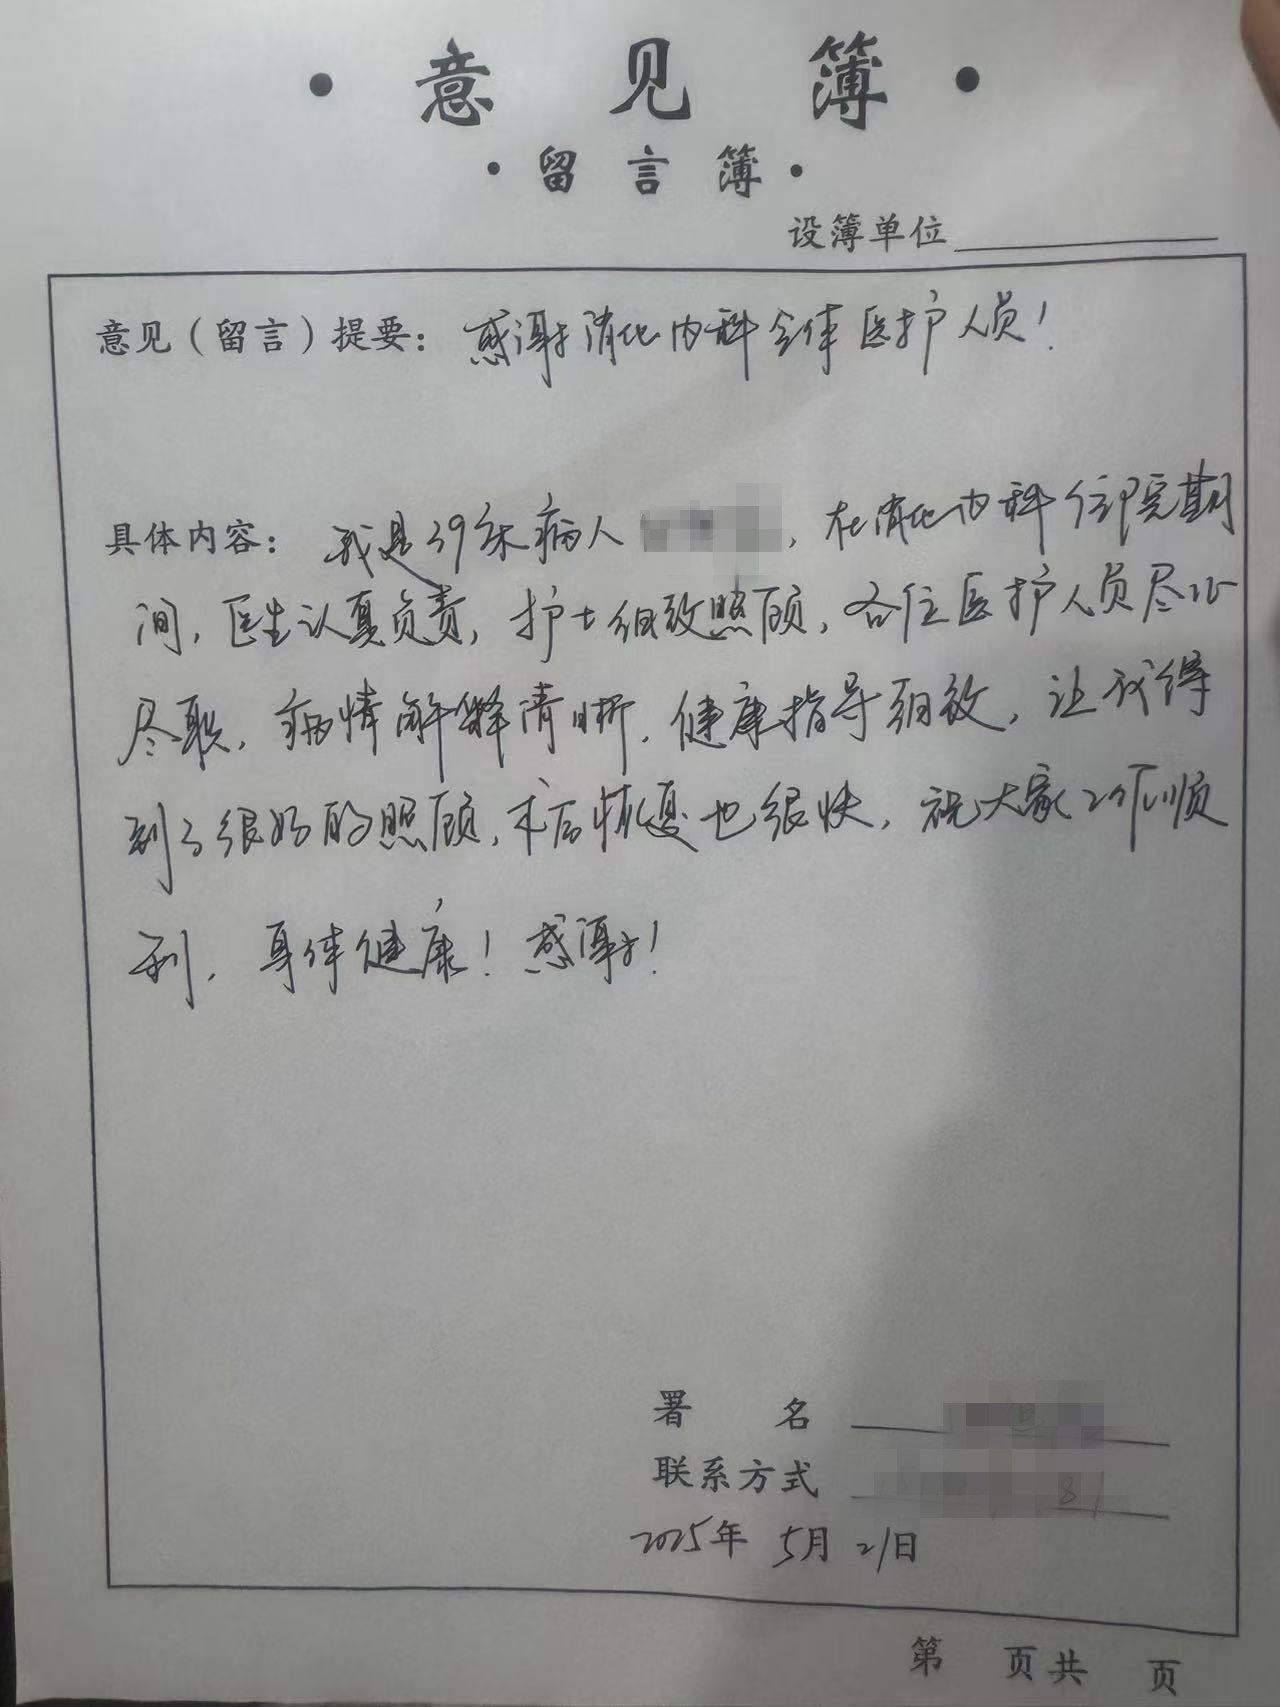 ·意见簿·
·留言簿·
设簿单位
意见（留言）提要：感谢消化内科全体医护人员！
具体内容：我是39床病人，在消化内科住院期
间，医生认真负责，护士细致照顾，各位医护人员尽心
尽职，病情解释清晰，健康指导细致，让我得
到了很好的照顾，术后恢复也很快，祝大家工作顺
利，身体健康！感谢！
署 名
联系方式
2025年 5月 21日
第 页共 页